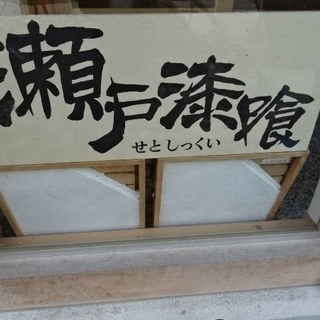 瀬戸漆喰
せとしっくい